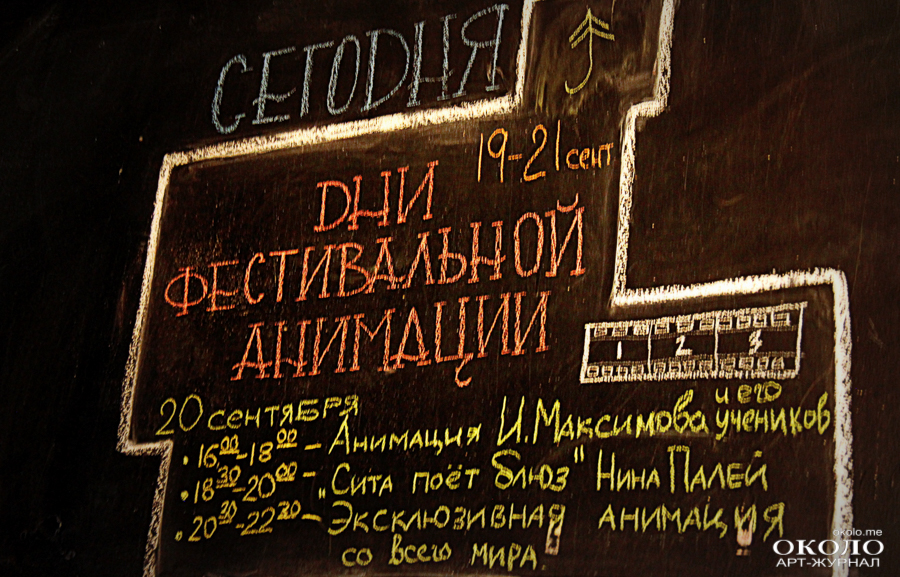 СЕГОДНЯ
19-21 сент
ДНИ
ФЕСТИВАЛЬНОЙ
АНИМАЦИИ
1 2 3
20 сентября
• 16⁰⁰-18⁰⁰ – Анимация И. Максимова и его учеников
• 18³⁰-20⁰⁰ – „Сита поёт блюз" Нина Палей
• 20³⁰-22³⁰ – Эксклюзивная анимация
со всего мира!
okolo.me
ОКОЛО
АРТ-ЖУРНАЛ